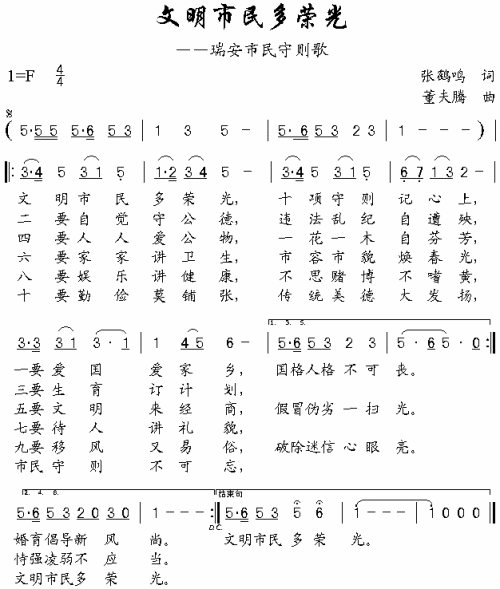 文明市民多荣光
——瑞安市民守则歌
1=F 4/4
张鹤鸣 词
董夫腾 曲
( 5·55 5·6 53 | 1 3 5 - | 5·6 53 23 | 1 - - - )
3·4 5 31 5 | 1·2 34 5 - | 3·4 5 31 5 | 6 7 13 2 -
文明市民多荣光, 十项守则记心上,
二要自觉守公德, 违法乱纪自遭殃,
四要人人爱公物, 一花一木自芬芳,
六要家家讲卫生, 市容市貌焕春光,
八要娱乐讲健康, 不思赌博不嗜黄,
十要勤俭莫铺张, 传统美德大发扬,
1. 3. 5.
3·3 31 3·1 | 1 45 5 - | 5·6 53 2 3 | 5·6 5·0
一要爱国爱家乡, 国格人格不可丧。
三要生育订计划,
五要文明来经商, 假冒伪劣一扫光。
七要待人讲礼貌,
九要移风又易俗, 破除迷信心眼亮。
市民守则不可忘,
2. 4. 6. 结束句
5·6 53 20 30 | 1 - - - 5·6 53 5 6 | 1 - - - | 1 0 0 0
D.C.
婚育倡导新风尚。 文明市民多荣光。
恃强凌弱不应当。
文明市民多荣光。